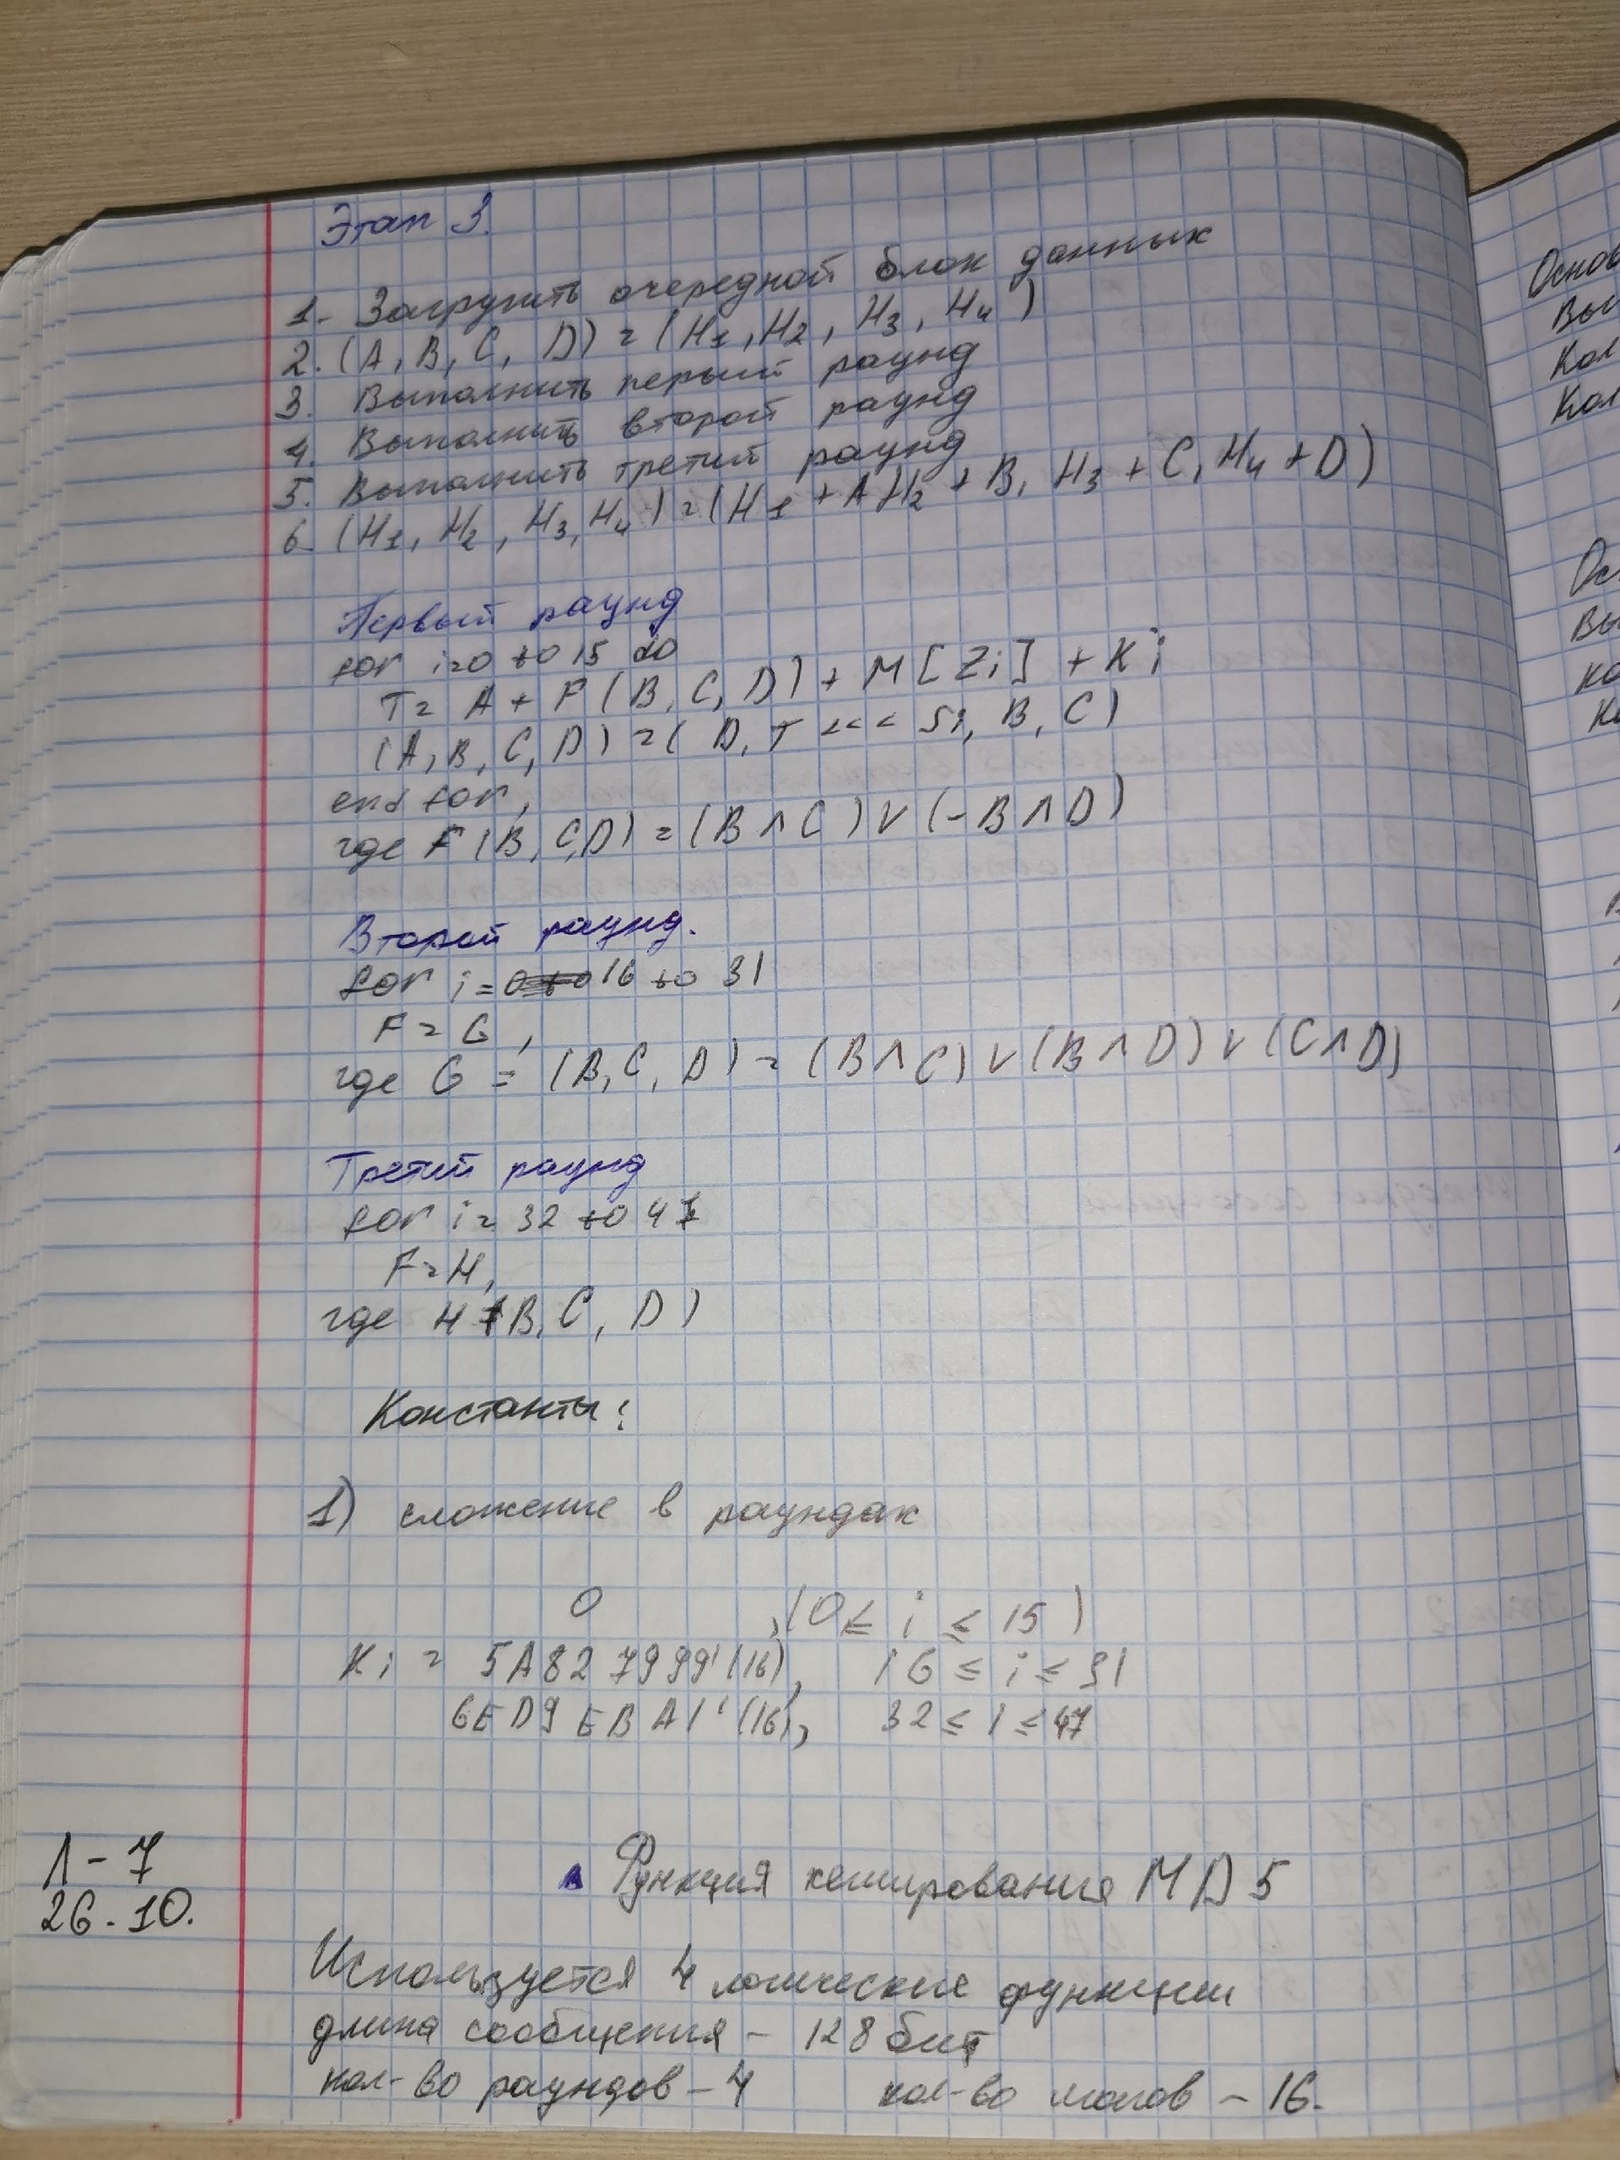 Этап 3.
1. Загрузить очередной блок данных
2. (A, B, C, D) = (H1, H2, H3, H4)
3. Выполнить первый раунд
4. Выполнить второй раунд
5. Выполнить третий раунд
6. (H1, H2, H3, H4) = (H1 + A H2 + B, H3 + C, H4 + D)
Первый раунд
for i=0 to 15 do
T= A + F (B, C, D) + M [Zi] + Ki
(A, B, C, D) = (D, T <<< Si, B, C)
end for,
где F (B, C, D) = (B ∧ C) ∨ (-B ∧ D)
Второй раунд.
for i = 16 to 31
F = G,
где G = (B, C, D) = (B ∧ C) ∨ (B ∧ D) ∨ (C ∧ D)
Третий раунд
for i= 32 to 47
F=H,
где H (B, C, D)
Константы:
1) сложение в раундах
0 , (0 ≤ i ≤ 15)
Ki = 5A827999'(16), 16 ≤ i ≤ 31
6ED9EBA1'(16), 32 ≤ i ≤ 47
Л-7
26.10.
Функция хеширования MD5
Используется 4 логические функции
длина сообщения - 128 бит
кол-во раундов - 4 кол-во шагов - 16.
Основ
Вы
Кол
Кол
Ос
Вы
ко
Ко